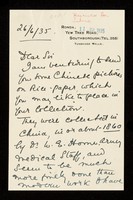 BOWEN,
YEW TREE ROAD,
SOUTHBOROUGH (TEL. 298)
TUNBRIDGE WELLS.
26/6/35
Dear Sir
I am venturing to send
you some Chinese pictures
on Rice-paper which
you may like to place in
your Collection.
They were collected in
China, in or about 1860
by Dr.
Medical Staff, and
seem to be much
more finely done than
modern work I have